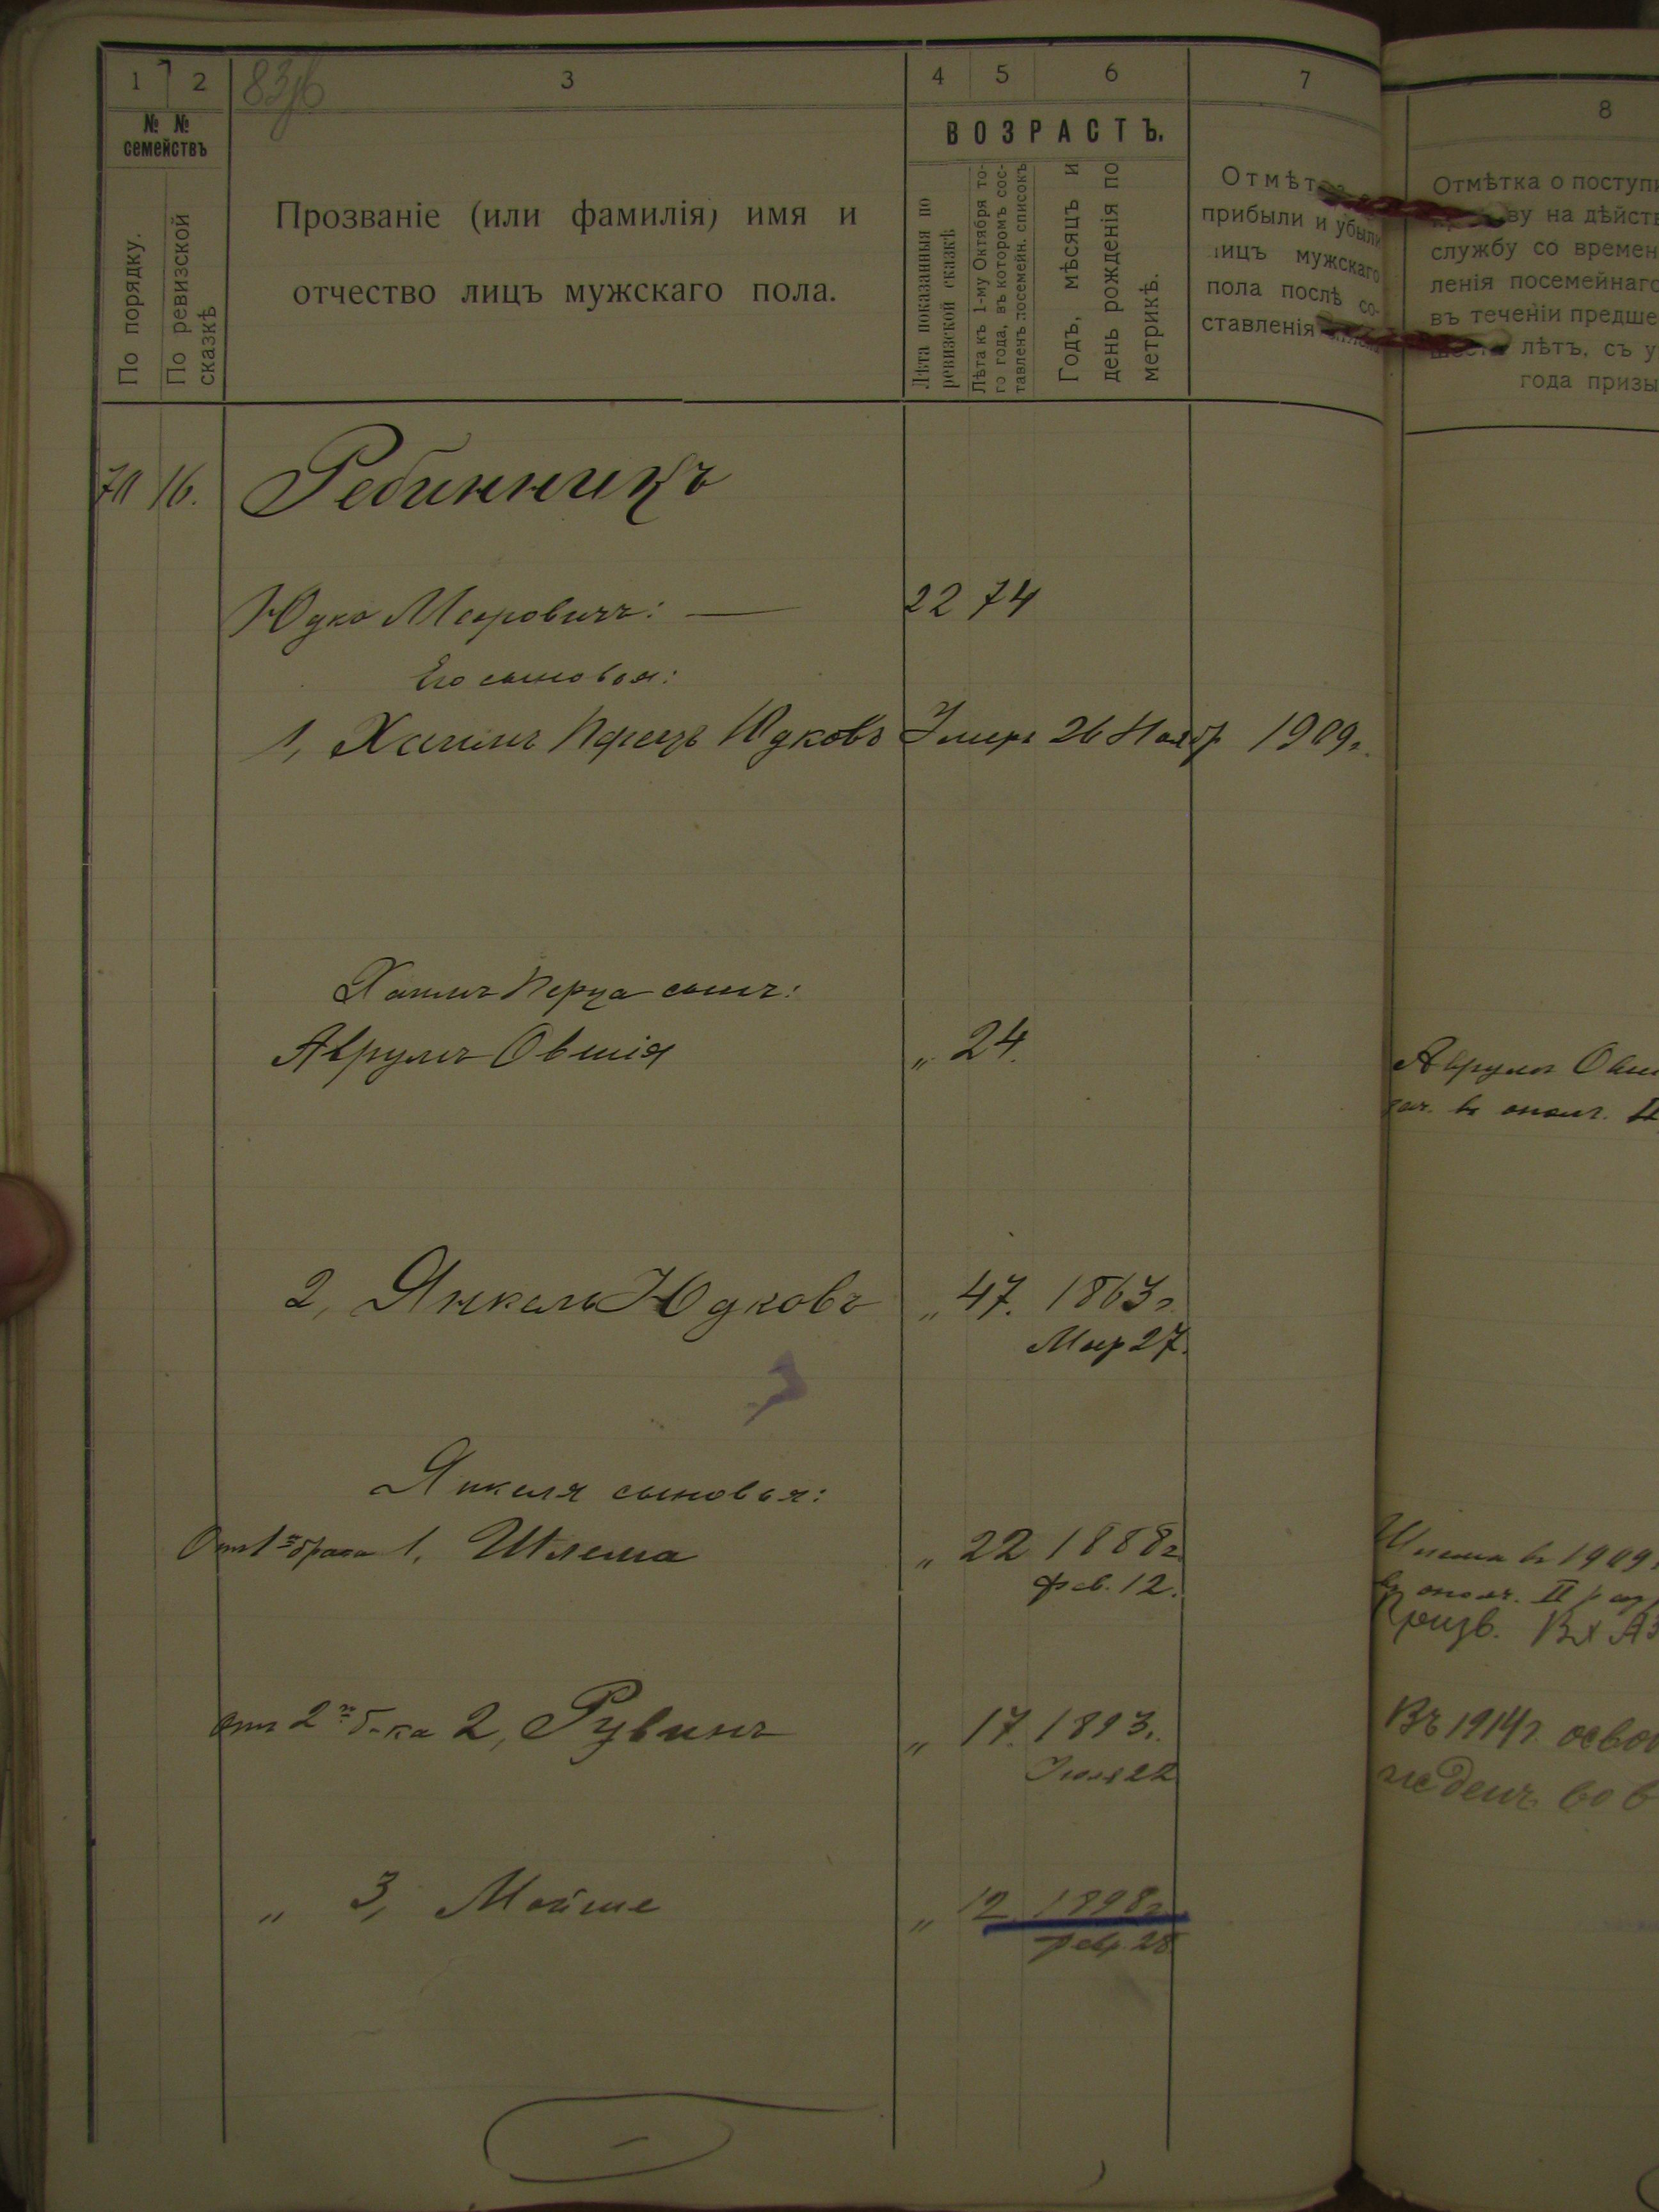 1 2 3 4 5 6 7
№ № семействъ
По порядку.
По ревизской сказкѣ
Прозваніе (или фамилія) имя и
отчество лицъ мужскаго пола.
ВОЗРАСТЪ.
Лѣта показанныя по
ревизской сказкѣ
Лѣта къ 1-му Октября то-
го года, въ которомъ сос-
тавленъ посемейн. списокъ
Годъ, мѣсяцъ и
день рожденія по
метрикѣ.
прибыли и убыли
лицъ мужскаго
пола послѣ со-
ставленія
8
Отмѣтка о поступ
ву на дѣйст
службу со времен
ленія посемейнаго
въ теченіи предше
лѣтъ, съ у
года призы
16. Ребинникъ
Юдко Меерович: — 22 74
Его сыновья:
1, Хаимъ Перецъ Юдковъ Умеръ 26 Ноябр 1909г.
Хаимъ Перца сынъ:
Аврумъ Овшія „ 24.
Аврумъ Овш
зач. въ ополч. II
2, Янкель Юдковъ „ 47. 1863г.
Мар 27.
Янкеля сыновья:
Отъ 1го брака 1, Шлема „ 22 1888г.
Фев. 12.
Шлема въ 1909
въ ополч. II раз
Призв.
отъ 2го б-ка 2, Рувинъ „ 17. 1893г.
22
Въ 1914г. осво
жденъ во в
„ 3, Мойше „ 12 1898г.
Февр. 28